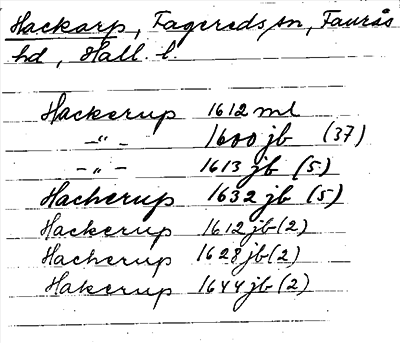 Hackarp, Fagereds sn, Faurås
hd, Hall. l.
Hackerup 1612 ml
—"— 1600 jb (37)
—"— 1613 jb (5)
Hackerup 1632 jb (5)
Hackerup 1612 jb (2)
Hackerup 1628 jb (2)
Hakerup 1644 jb (2)